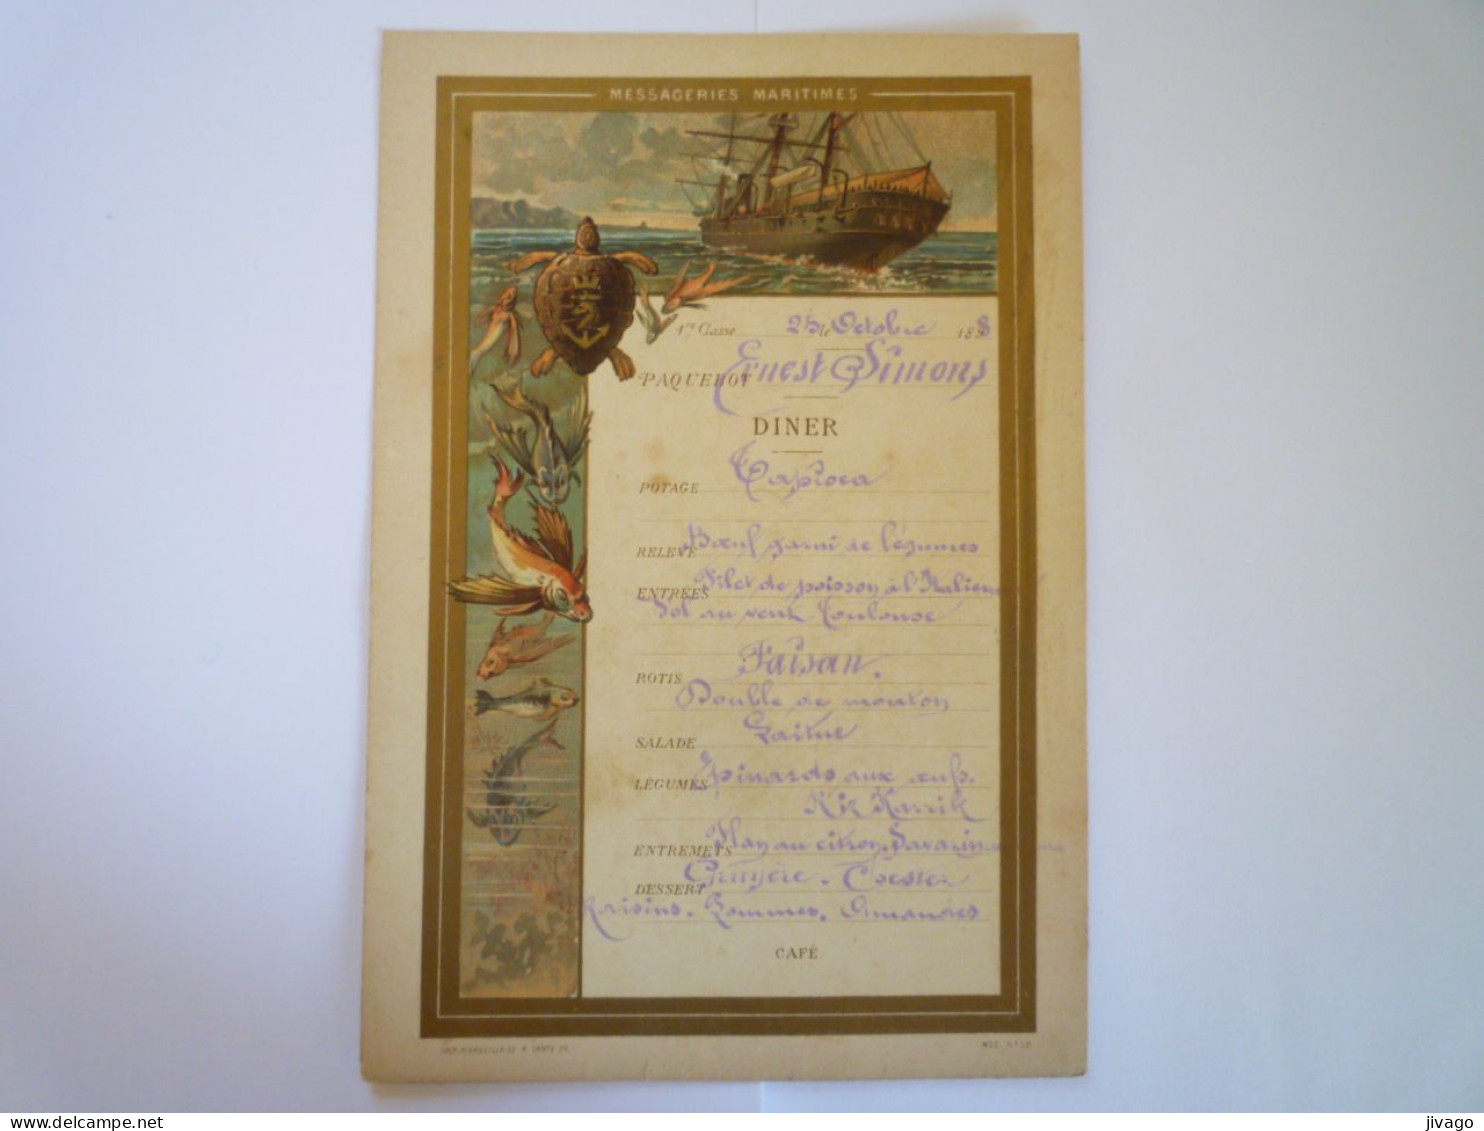 MESSAGERIES MARITIMES
1re Classe 25 le Octobre 1898
PAQUEBOT Ernest Simons
DINER
POTAGE Tapioca
RELEVÉ Bœuf garni de légumes
ENTRÉES Filet de poisson à l'Italienne
Vol au vent Toulouse
ROTIS Faisan.
Double de mouton
SALADE Laitue
LÉGUMES Epinards aux œufs.
Riz Karrik
ENTREMETS Flan au citron. Savarin
DESSERT Gruyère. Chester
Raisins. Pommes. Amandes
CAFÉ
IMP. MARSEILLAISE
MOD. N° 50
jivago
delcampe.net